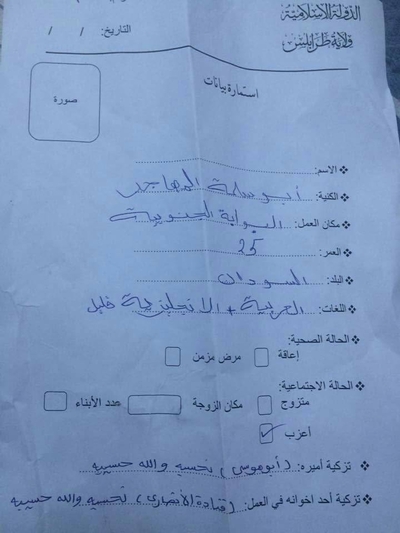 الدولة الإسلامية
ولاية طرابلس
التاريخ: / /
استمارة بيانات
صورة
❖ الاسم:
❖ الكنية: أبو سلمة المهاجر
❖ مكان العمل: البوابة الجنوبية
❖ العمر: 25
❖ البلد: السودان
❖ اللغات: العربية + الانجليزية قليل
❖ الحالة الصحية:
إعاقة مرض مزمن
❖ الحالة الاجتماعية:
متزوج مكان الزوجة عدد الأبناء
أعزب
❖ تزكية أميره: (أبو موسى) نحسبه والله حسيبه
❖ تزكية أحد اخوانه في العمل: (قتادة الأنصاري) نحسبه والله حسيبه